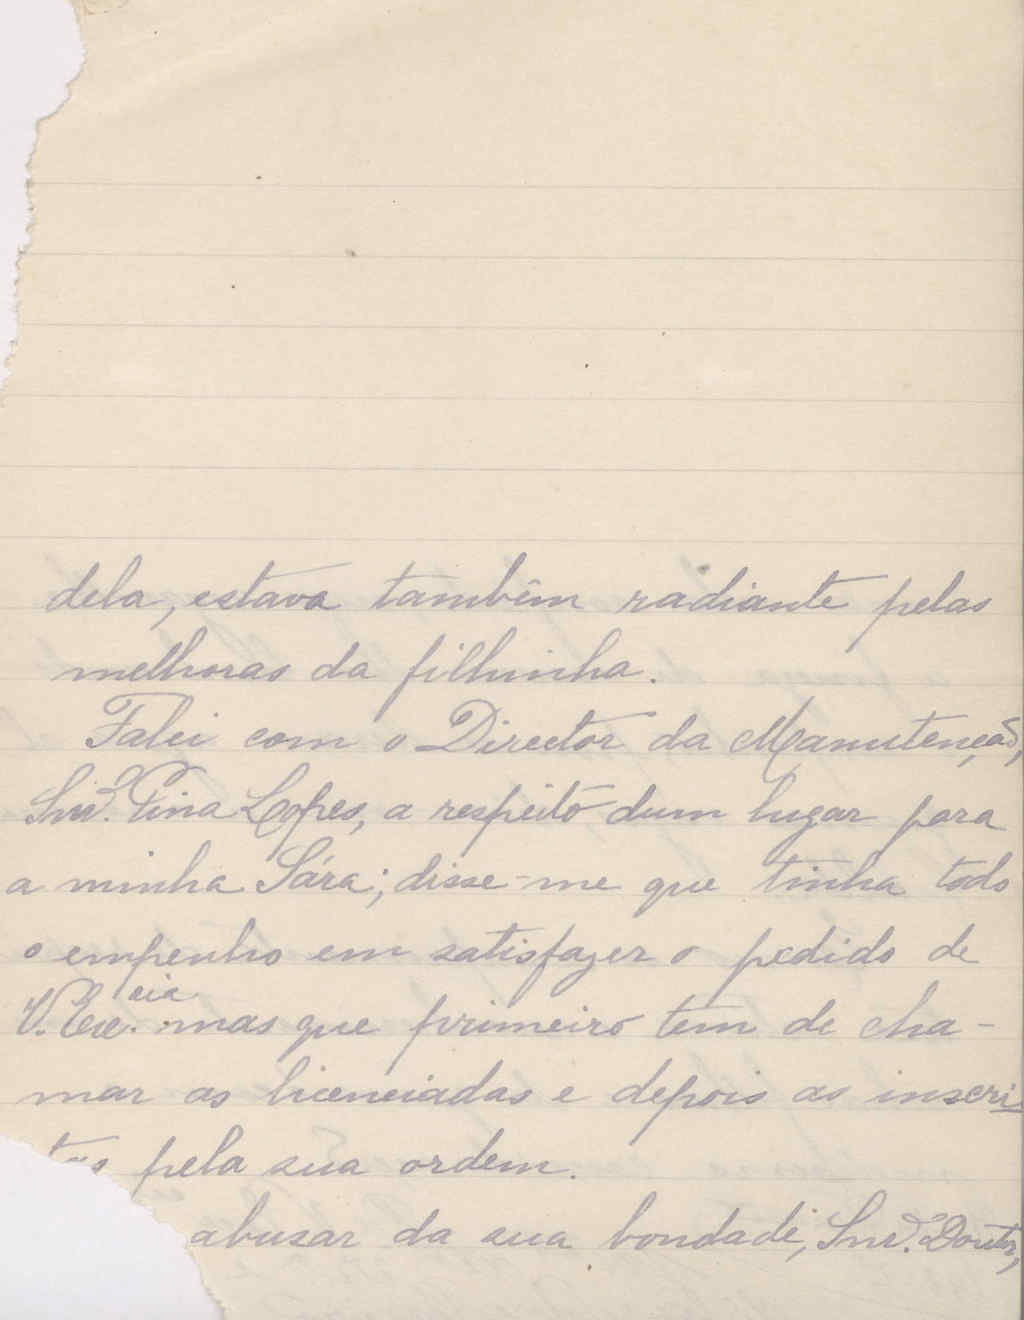 dela, estava tambêm radiante pelas
melhoras da filhinha.
Falei com o Director da Manutenção,
Snr. Pina Lopes, a respeito dum lugar para
a minha Sára; disse-me que tinha todo
o empenho em satisfazer o pedido de
V. Ex.cia mas que primeiro tem de cha-
mar as licenciadas e depois as inscri-
tas pela sua ordem.
abusar da sua bondade, Snr. Doutor,